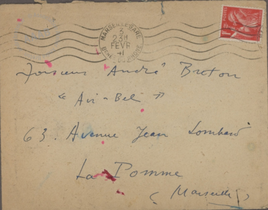 MARSEILLE
FEVR
41
Monsieur André Breton
"Air-Bel"
63. Avenue Jean Lombard
La Pomme
(Marseille)